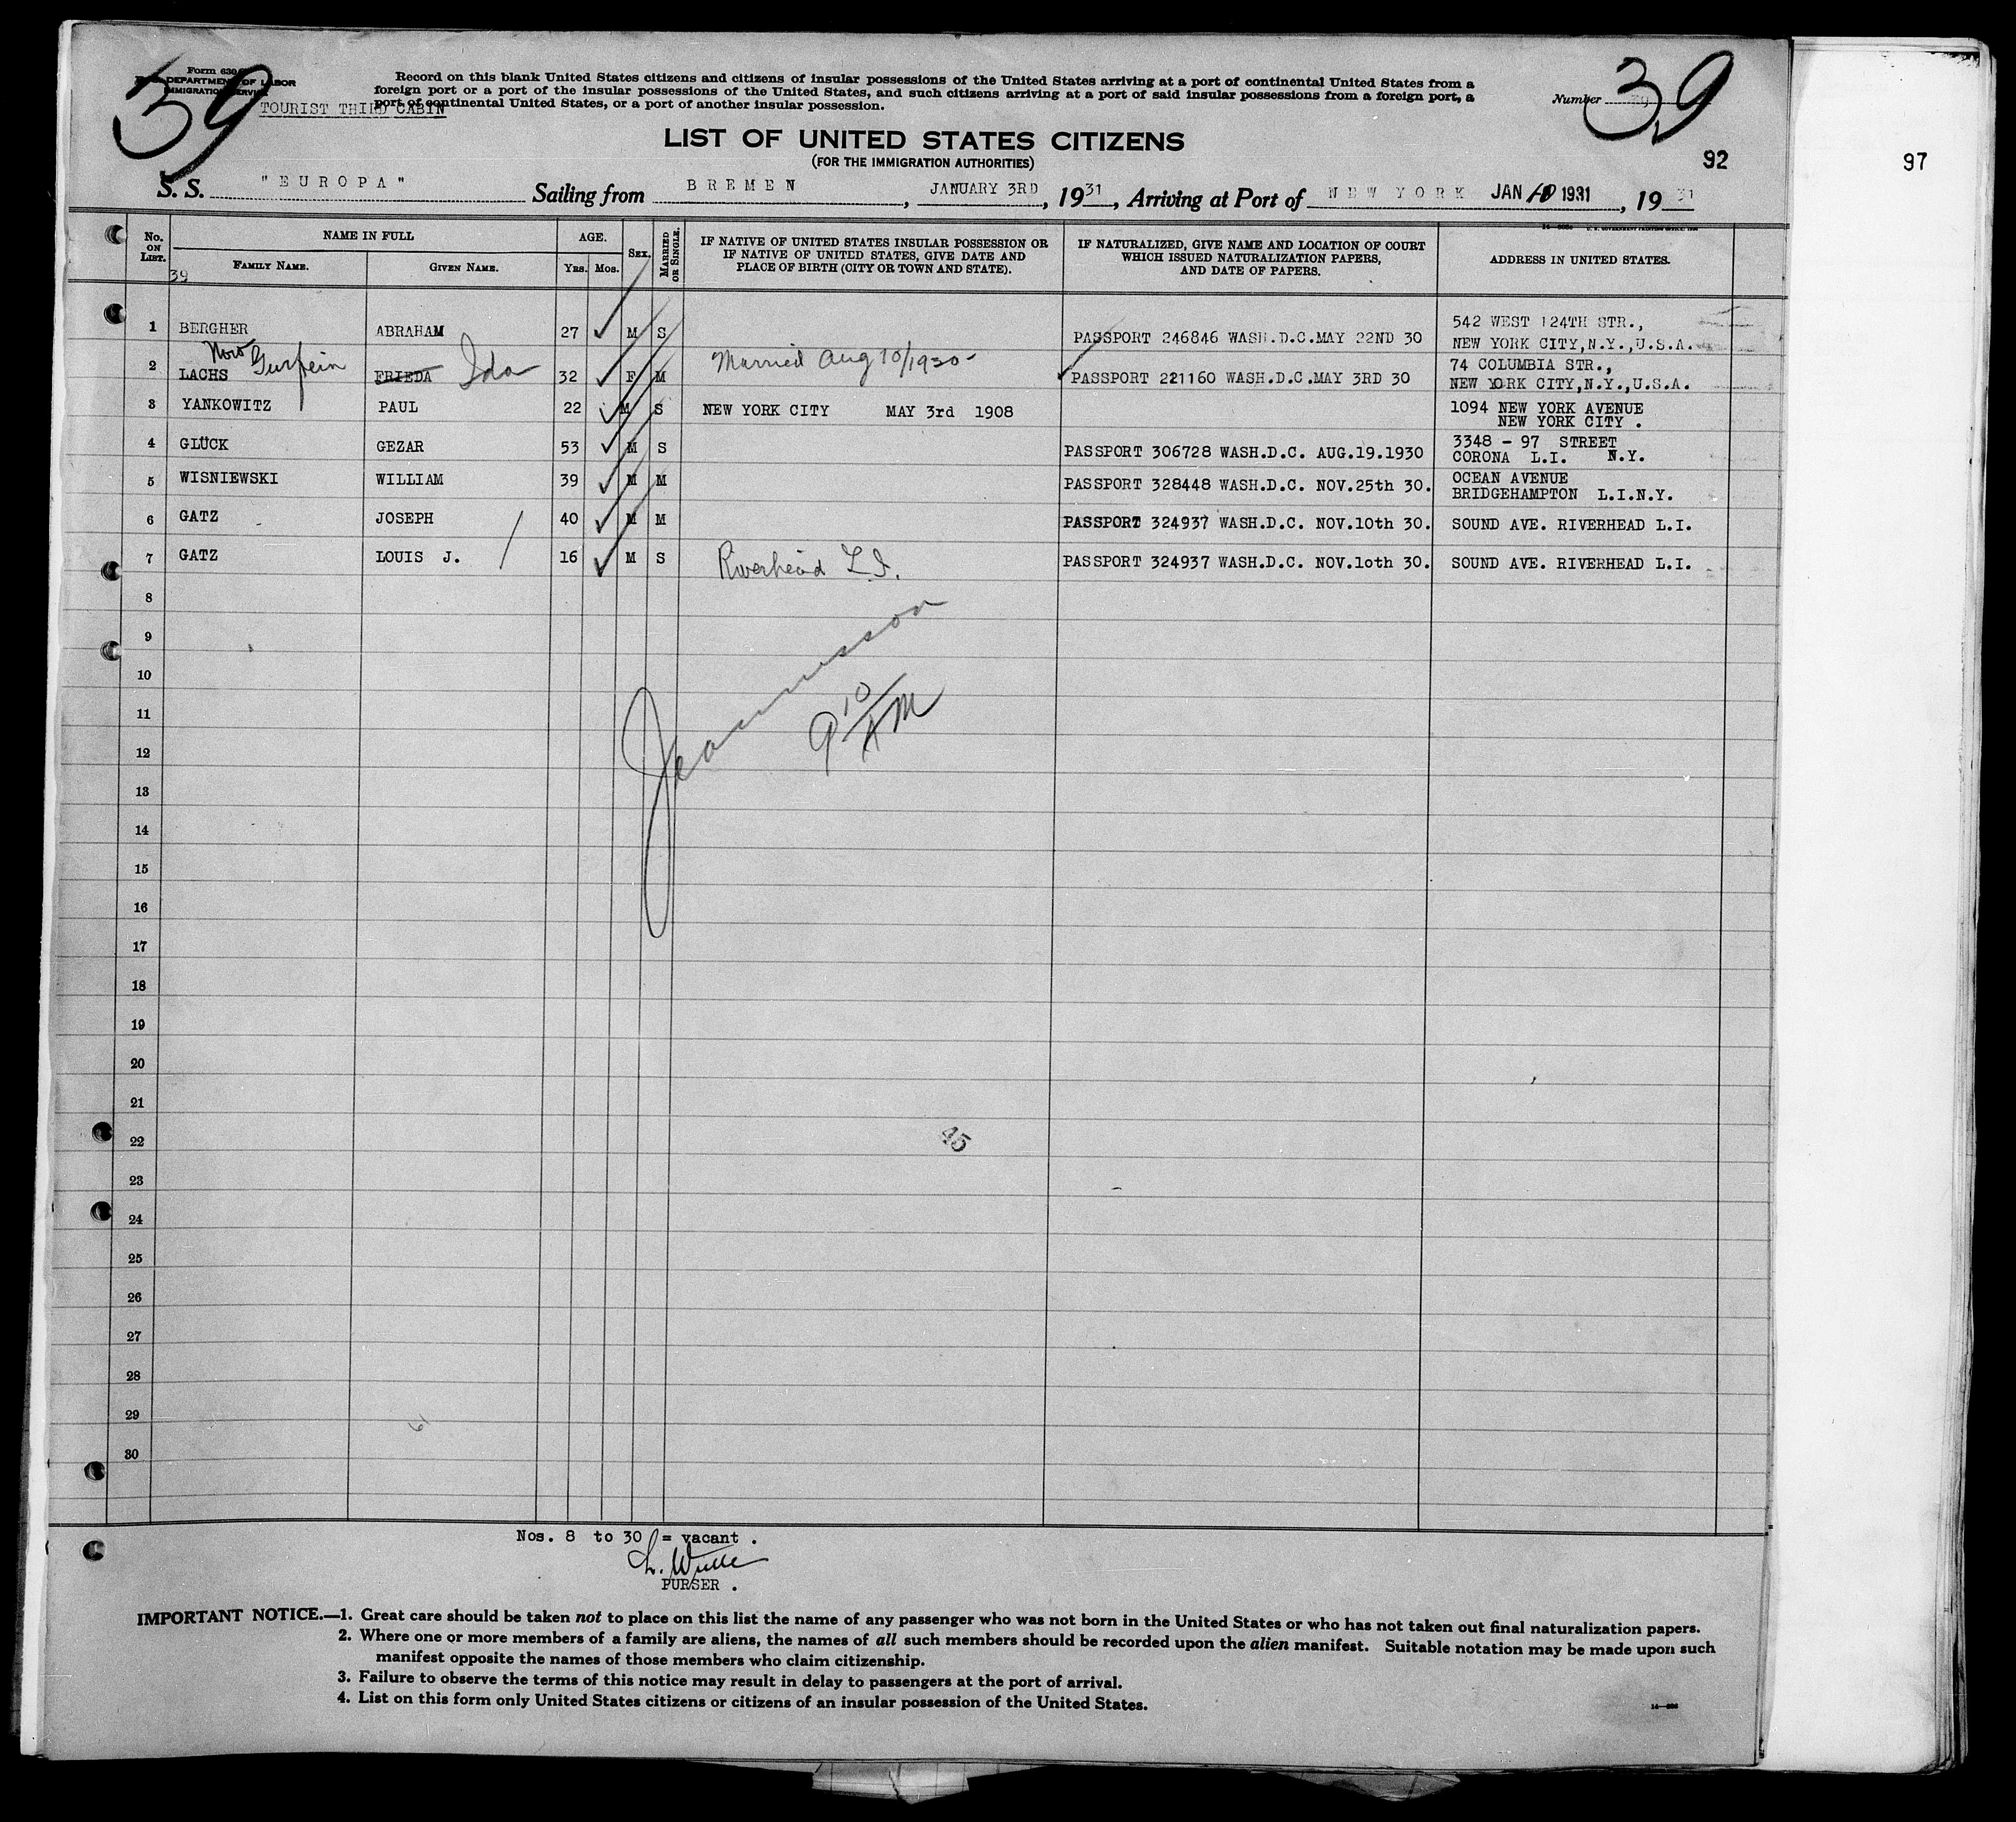 39
Form 630
U. S. DEPARTMENT OF LABOR
IMMIGRATION SERVICE
TOURIST THIRD CABIN
Record on this blank United States citizens and citizens of insular possessions of the United States arriving at a port of continental United States from a
foreign port or a port of the insular possessions of the United States, and such citizens arriving at a port of said insular possessions from a foreign port, a
port of continental United States, or a port of another insular possession.
Number 39
39
LIST OF UNITED STATES CITIZENS
(FOR THE IMMIGRATION AUTHORITIES)
92
97
S. S. "EUROPA" Sailing from BREMEN, JANUARY 3RD, 1931, Arriving at Port of NEW YORK JAN 10 1931, 1931
No. ON LIST. NAME IN FULL FAMILY NAME. GIVEN NAME. AGE. YRS. MOS. SEX. MARRIED OR SINGLE. IF NATIVE OF UNITED STATES INSULAR POSSESSION OR IF NATIVE OF UNITED STATES, GIVE DATE AND PLACE OF BIRTH (CITY OR TOWN AND STATE). IF NATURALIZED, GIVE NAME AND LOCATION OF COURT WHICH ISSUED NATURALIZATION PAPERS, AND DATE OF PAPERS. ADDRESS IN UNITED STATES.
39
1 BERGHER ABRAHAM 27 M S PASSPORT 246846 WASH.D.C.MAY 22ND 30 542 WEST 124TH STR.,
NEW YORK CITY,N.Y.,U.S.A.
Now Gurfein
2 LACHS FRIEDA Ida 32 F M Married Aug 10/1930 PASSPORT 221160 WASH.D.C.MAY 3RD 30 74 COLUMBIA STR.,
NEW YORK CITY,N.Y.,U.S.A.
3 YANKOWITZ PAUL 22 M S NEW YORK CITY MAY 3rd 1908 1094 NEW YORK AVENUE
NEW YORK CITY .
4 GLÜCK GEZAR 53 M S PASSPORT 306728 WASH.D.C. AUG.19.1930 3348 - 97 STREET
CORONA L.I. N.Y.
5 WISNIEWSKI WILLIAM 39 M M PASSPORT 328448 WASH.D.C. NOV.25th 30. OCEAN AVENUE
BRIDGEHAMPTON L.I.N.Y.
6 GATZ JOSEPH 40 M M PASSPORT 324937 WASH.D.C. NOV.10th 30. SOUND AVE. RIVERHEAD L.I.
7 GATZ LOUIS J. 16 M S Riverhead L.I. PASSPORT 324937 WASH.D.C. NOV.1oth 30. SOUND AVE. RIVERHEAD L.I.
8
9
10
9 10/AM
11
12
13
14
15
16
17
18
19
20
21
22
45
23
24
25
26
27
28
29
30
Nos. 8 to 30 = vacant .
PURSER .
IMPORTANT NOTICE.—1. Great care should be taken not to place on this list the name of any passenger who was not born in the United States or who has not taken out final naturalization papers.
2. Where one or more members of a family are aliens, the names of all such members should be recorded upon the alien manifest. Suitable notation may be made upon such
manifest opposite the names of those members who claim citizenship.
3. Failure to observe the terms of this notice may result in delay to passengers at the port of arrival.
4. List on this form only United States citizens or citizens of an insular possession of the United States.